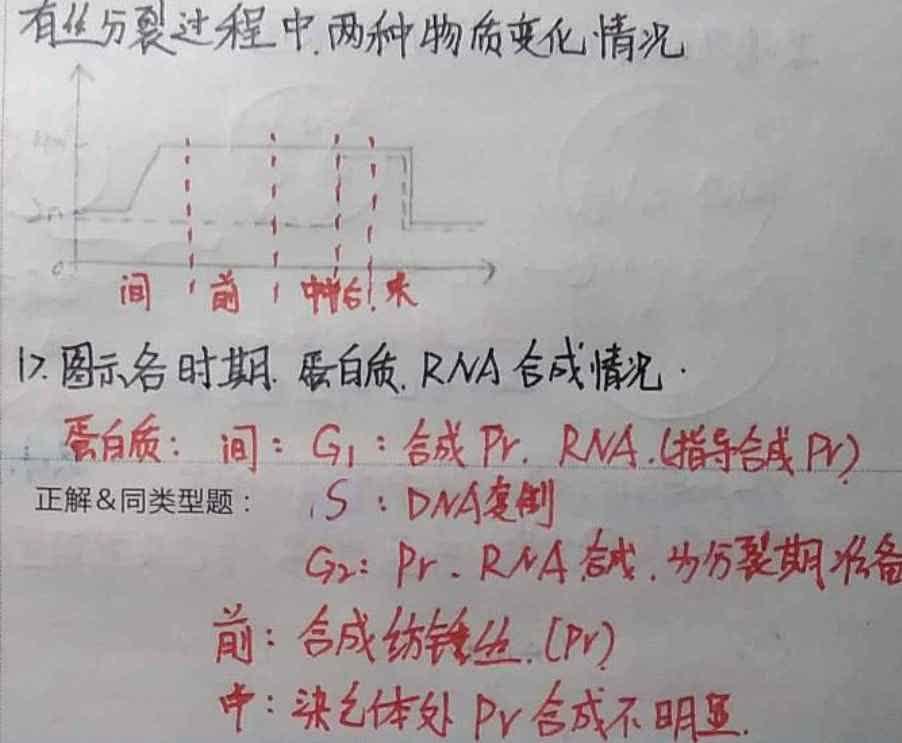 有丝分裂过程中.两种物质变化情况
4n
2n
0
间 前 中 后 末
17. 图示各时期.蛋白质.RNA合成情况.
蛋白质: 间: G₁: 合成Pr. RNA.(指导合成Pr)
正解&同类型题: S: DNA复制
G₂: Pr. RNA合成.为分裂期准备
前: 合成纺锤丝.(Pr)
中: 染色体处Pr合成不明显.